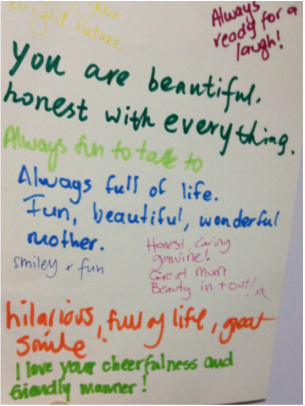 your
bright nature
Always
ready for a
laugh!
You are beautiful.
honest with everything.
Always fun to talk to
Always full of life.
Fun, beautiful, wonderful
mother.
Honest, caring
genuine!
Great mum
Beauty in + out!
smiley & fun
hilarious, full of life, great
smile.
I love your cheerfulness and
friendly manner!